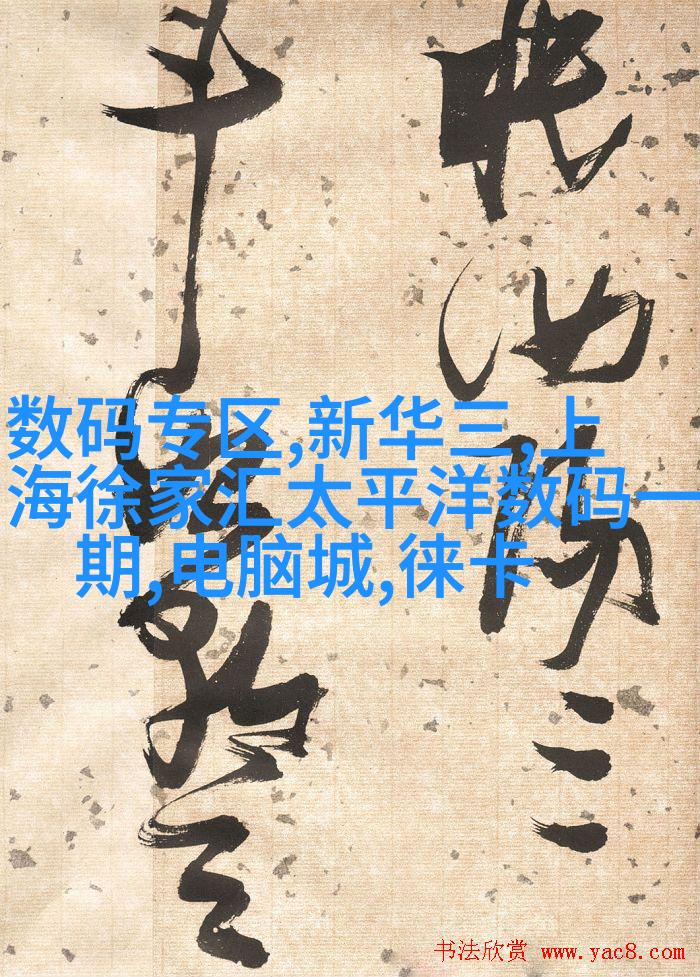 眠汝阳三
斗始朝天
数码专区,新华三,上
海徐家汇太平洋数码一
期,电脑城,徕卡
书法欣赏 www.yac8.com